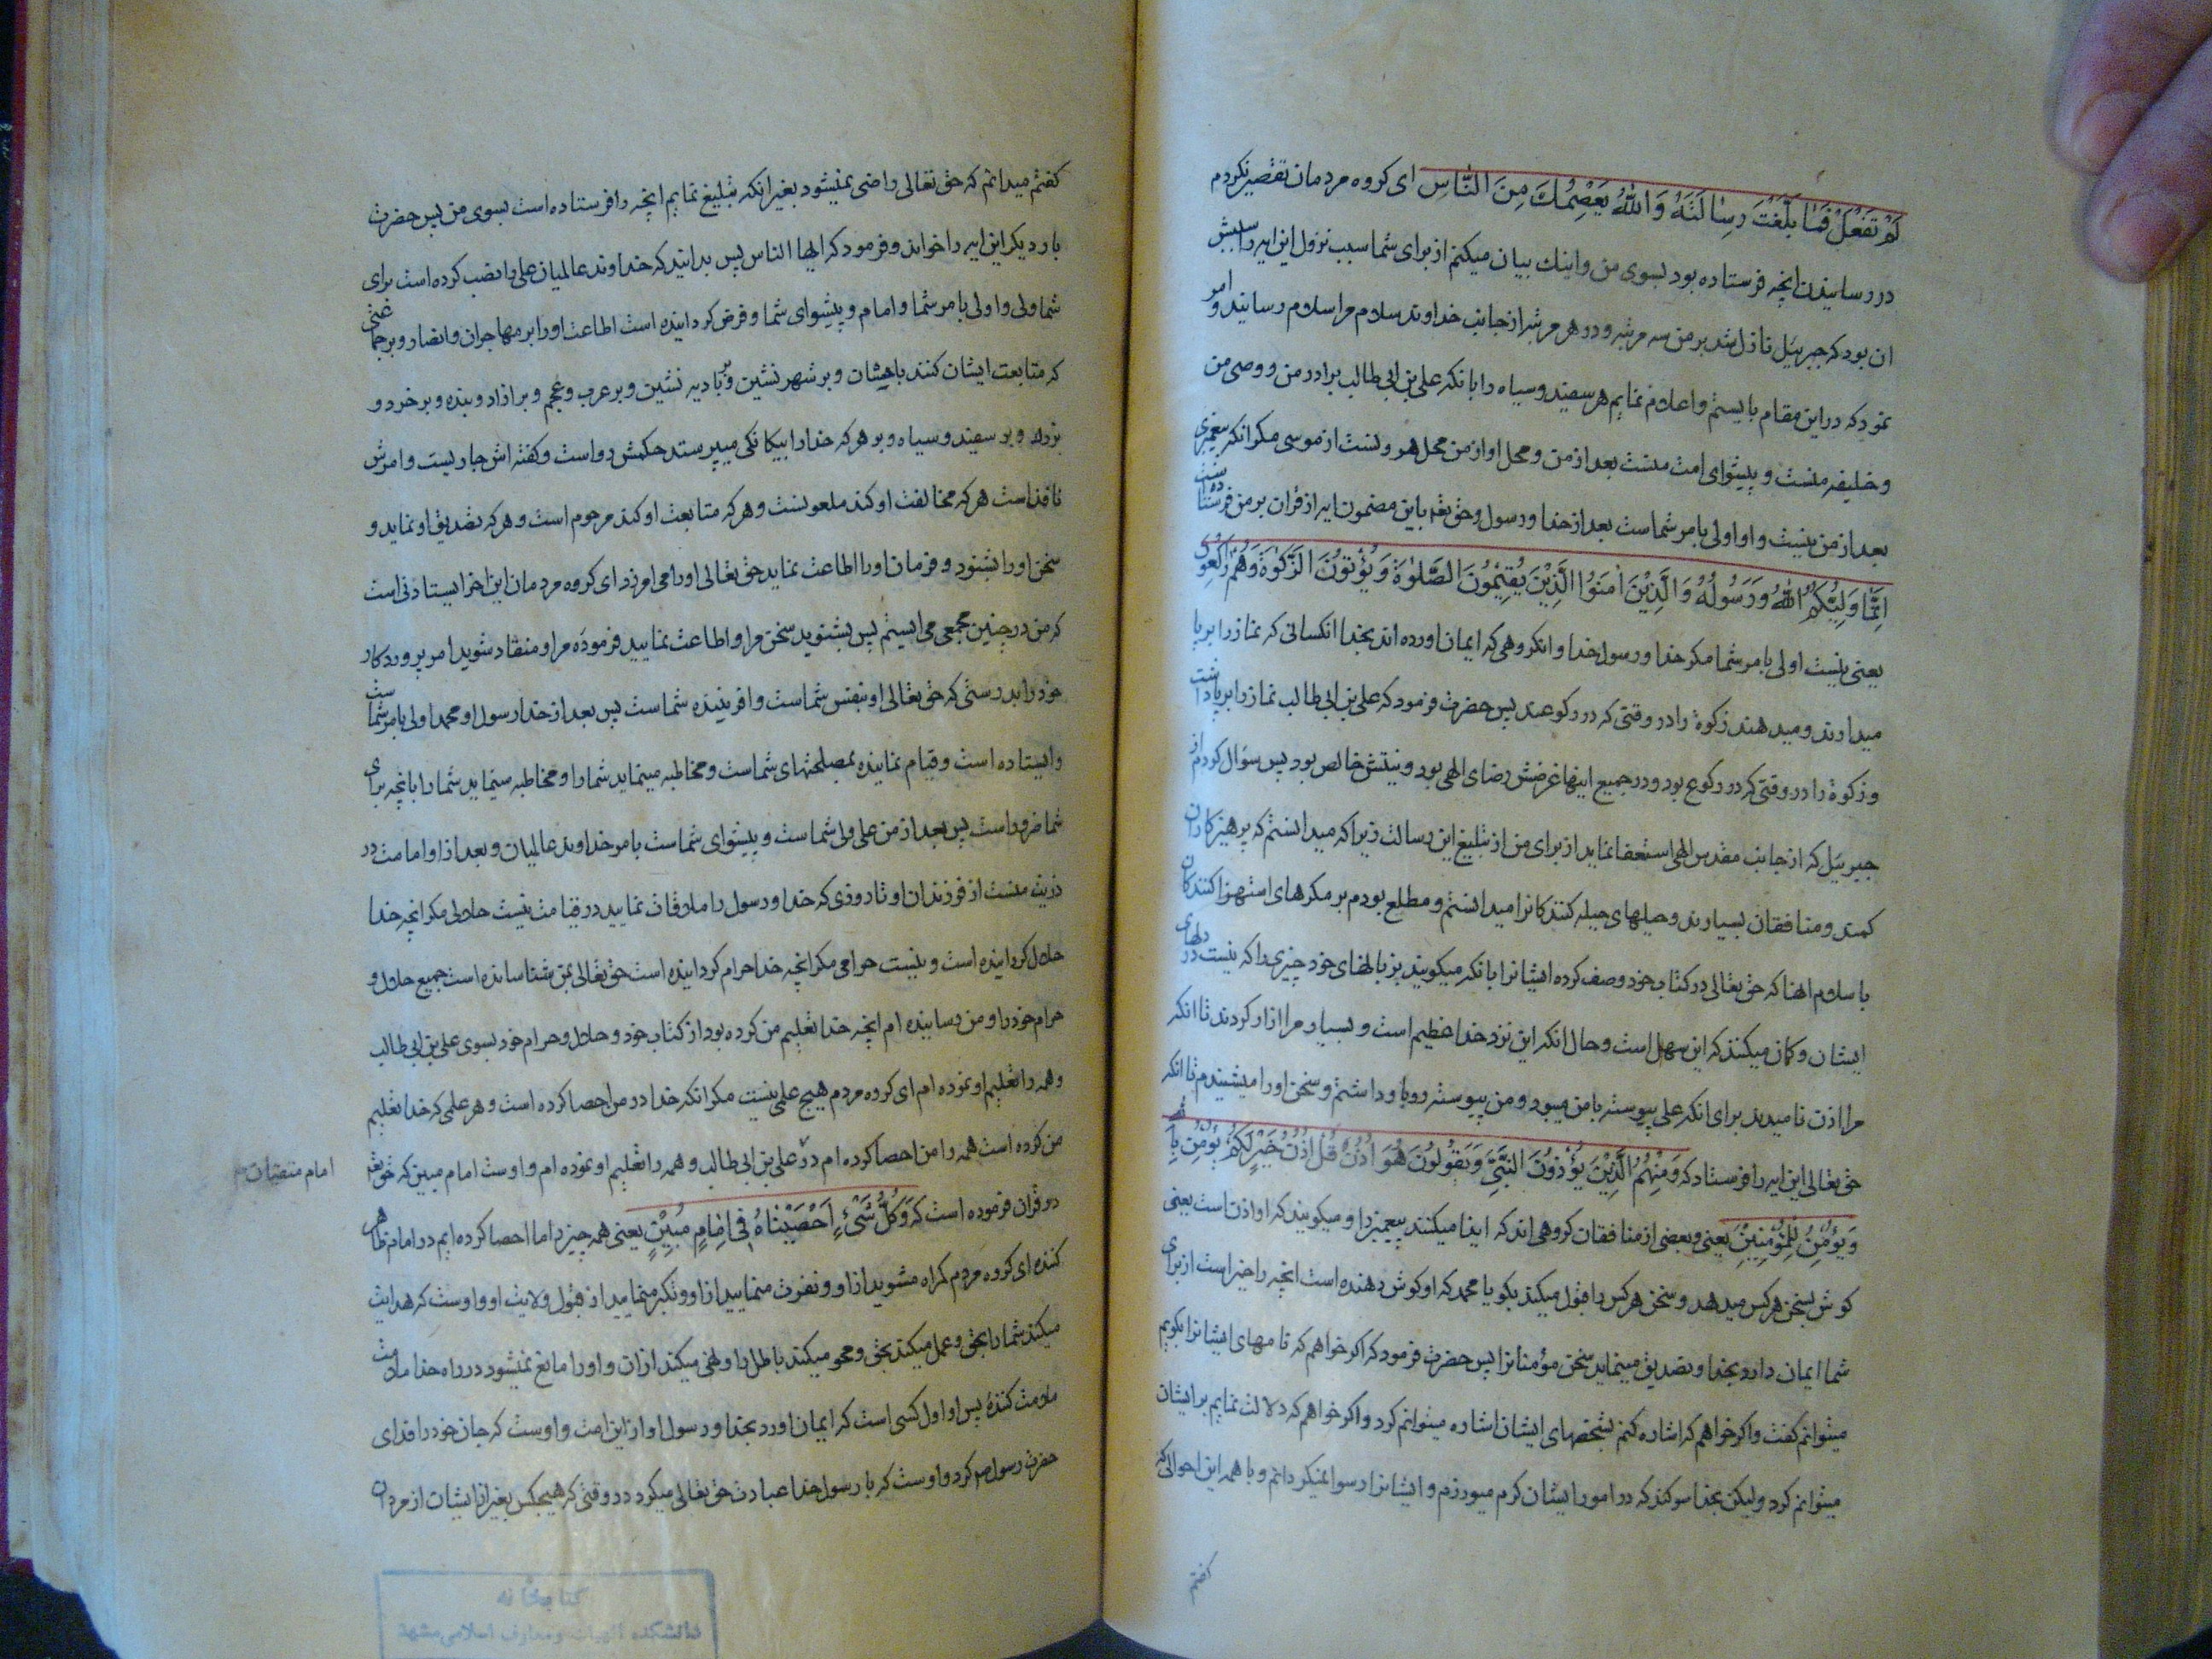 لَمْ تَفْعَلْ فَمَا بَلَّغْتَ رِسَالَتَهُ وَاللّٰهُ يَعْصِمُكَ مِنَ النَّاسِ ای کروه مردمان تقصیر نکردم
در رسانیدن انچه فرستاده بود بسوی من و اینك بیان میکنم از برای شما سبب نزول این ایه را سببش
ان بود که جبرییل نازل شد بر من سه مرتبه و در هر مرتبه از جانب خداوند سلام مرا سلام رسانید و امر
نمود که در این مقام بایستم و اعلام نمایم هر سفید و سیاه را بانکه علی بن ابی طالب برادر من و وصی من
و خلیفه منست و پیشوای امت منست بعد از من و محل او از من محل هرونست از موسی مکر انکه پیغمبری
بعد از من نیست و او اولی بامر شماست بعد از خدا و رسول و حق تعه باین مضمون ایه از قران بر من فرستاده است
اِنَّمَا وَلِيُّكُمُ اللّٰهُ وَرَسُولُهُ وَالَّذِيْنَ اٰمَنُوا الَّذِيْنَ يُقِيْمُونَ الصَّلٰوةَ وَيُؤْتُوْنَ الزَّكٰوةَ وَهُمْ رٰكِعُونَ
یعنی نیست اولی بامر شما مکر خدا و رسول خدا و انکروهی که ایمان اورده اند بخدا انکسانی که نماز را برپا
میدارند و میدهند زکوة را در وقتی که در رکوعند پس حضرت فرمود که علی بن ابی طالب نماز را برپا داشت
و زکوة را در وقتی که در رکوع بود و در جمیع اینها غرضش رضای الهی بود و نیتش خالص بود پس سؤال کردم از
جبرییل که از جانب مقدس الهی استعفا نماید از برای من از تبلیغ این رسالت زیرا که میدانستم که پرهیزکاران
کمند و منافقان بسیارند و حیلهای حیله کنندکانرا میدانستم و مطلع بودم بر مکرهای استهزا کنندکان
باسلام انها که حق تعالی در کتاب خود وصف کرده ایشانرا بانکه میکویند بزبانهای خود چیزی را که نیست در دلهای
ایشان و کمان میکنند که این سهل است و حال انکه این نزد خدا عظیم است و بسیار مرا ازار کردند تا انکه
مرا اذن نامیدند برای انکه علی پیوسته با من میبود و من پیوسته رو باو داشتم و سخن او را میشنیدم تا انکه
حق تعالی این ایه را فرستاد که وَمِنْهُمُ الَّذِيْنَ يُؤْذُوْنَ النَّبِيَّ وَيَقُولُونَ هُوَ اُذُنٌ قُلْ اُذُنُ خَيْرٍ لَكُمْ يُؤْمِنُ بِاللّٰهِ
وَيُؤْمِنُ لِلْمُؤْمِنِيْنَ یعنی و بعضی از منافقان کروهی اند که ایذا میکنند پیغمبر را و میکویند که او اذن است یعنی
کوش بسخن هر کس میدهد و سخن هر کس را قبول میکند بکو یا محمد که او کوش دهنده است انچه را خیر است از برای
شما ایمان دارد بخدا و تصدیق مینماید سخن مؤمنانرا پس حضرت فرمود که اکر خواهم که نامهای ایشانرا بکویم
میتوانم کفت و اکر خواهم که اشاره کنم بشخصهای ایشان اشاره میتوانم کرد و اکر خواهم که دلالت نمایم بر ایشان
میتوانم کرد ولیکن بخدا سوکند که در امور ایشان کرم میورزم و ایشانرا رسوا نمیکردانم و با همه این احوال که
کفتم
کفتم میدانم که حق تعالی راضی نمیشود بغیر انکه تبلیغ نمایم انچه را فرستاده است بسوی من پس حضرت
بار دیکر این ایه را خواند و فرمود که ایها الناس پس بدانید که خداوند عالمیان علی را نصب کرده است برای
شما ولی و اولی بامر شما و امام و پیشوای شما و فرض کردانیده است اطاعت او را بر مهاجران و انصار و بر جماعتی
که متابعت ایشان کنند باحسان و بر شهر نشین و بر بادیه نشین و بر عرب و عجم و بر ازاد و بنده و بر خرد و
بزرك و بر سفید و سیاه و بر هر که خدا را بیکانکی میپرستد حکمش رواست و کفته اش جاریست و امرش
نافذ است هر که مخالفت او کند ملعونست و هر که متابعت او کند مرحوم است و هر که تصدیق او نماید و
سخن او را بشنود و فرمان او را اطاعت نماید حق تعالی او را می امرزد ای کروه مردمان این اخر ایستادنی است
که من در چنین مجمعی می ایستم پس بشنوید سخن مرا و اطاعت نمایید فرموده مرا و منقاد شوید امر پروردکار
خود را بدرستی که حق تعالی اولی بنفس شماست و افریننده شماست پس بعد از خدا رسول او محمد اولی بامر شماست
و ایستاده است و قیام نماینده بمصلحتهای شماست و مخاطبه مینماید شما را و مخاطبه مینماید شما را بانچه برای
شما ضرور است پس بعد از من علی ولی شماست و پیشوای شماست بامر خداوند عالمیان و بعد از او امامت در
ذریت منست از فرزندان او تا روزی که خدا و رسول را ملاقات نمایید در قیامت نیست حلالی مکر انچه خدا
حلال کردانیده است و نیست حرامی مکر انچه خدا حرام کردانیده است حق تعالی بمن شناسانده است جمیع حلال و
حرام خود را و من رسانیده ام انچه خدا تعلیم من کرده بود از کتاب خود و حلال و حرام خود بسوی علی بن ابی طالب
و همه را تعلیم او نموده ام ای کروه مردم هیچ علمی نیست مکر انکه خدا در من احصا کرده است و هر علمی که خدا تعلیم
من کرده است همه را من احصا کرده ام در علی بن ابی طالب و همه را تعلیم او نموده ام و اوست امام مبین که حق تعه
امام متقیان
در قران فرموده است که وَكُلَّ شَيْءٍ اَحْصَيْنَاهُ فِي اِمَامٍ مُبِيْنٍ یعنی همه چیز را ما احصا کرده ایم در امام ظاهر
کننده ای کروه مردم کمراه مشوید از او و نفرت منمایید از او و تکبر منمایید از قبول ولایت او و اوست که هدایت
میکند شما را بحق و عمل میکند بحق و محو میکند باطل را و نهی میکند از ان و او را مانع نمیشود در راه خدا ملامت
ملامت کننده پس او اول کسی است که ایمان اورد بخدا و رسول او از این امت و اوست که جان خود را فدای
حضرت رسول ص کرد و اوست که با رسول خدا عبادت حق تعالی میکرد در وقتی که هیچکس بغیر از ایشان از مردان
کتابخانه
دانشکده الهیات و معارف اسلامی مشهد